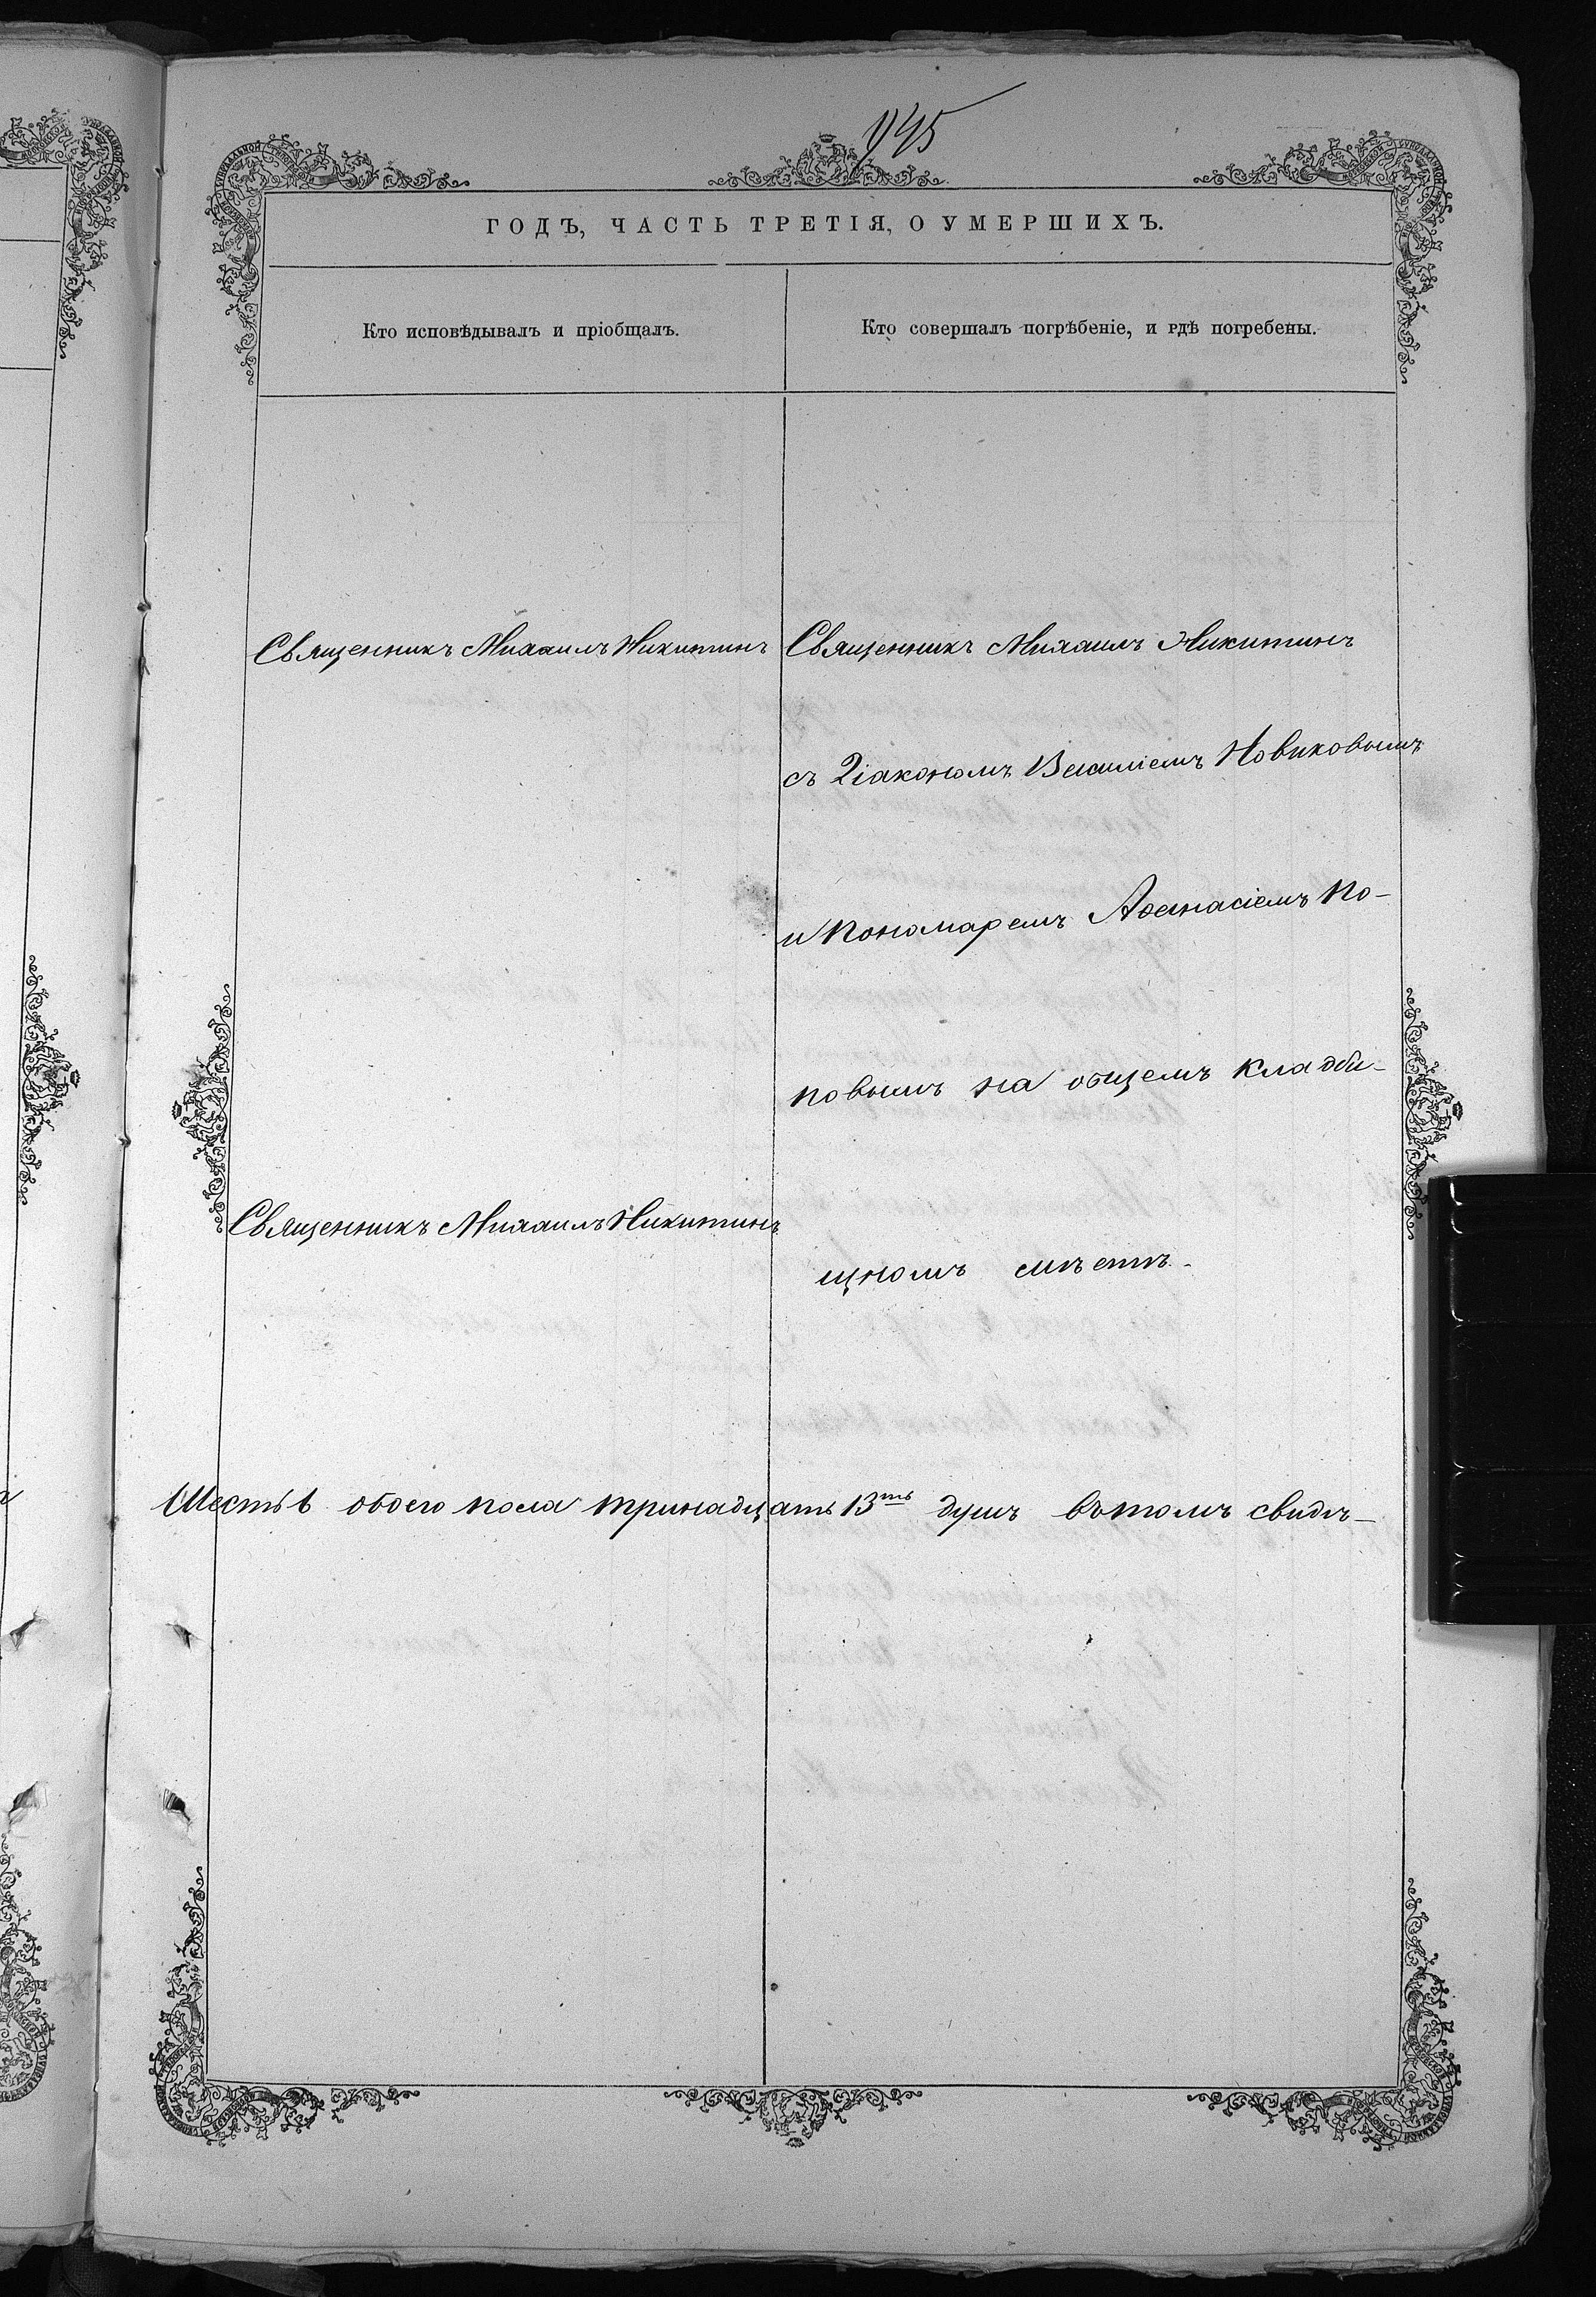 945
ГОДЪ, ЧАСТЬ ТРЕТІЯ, О УМЕРШИХЪ.
Кто исповѣдывалъ и пріобщалъ.
Кто совершалъ погрѣбеніе, и гдѣ погребены.
Священникъ Михаилъ Никитинъ
Священникъ Михаилъ Никитинъ
съ Діакономъ Василіемъ Новиковымъ
и Пономаремъ Аѳанасіемъ По-
повымъ на общемъ кладби-
щномъ мѣстѣ.
Священникъ Михаилъ Никитинъ
Шесть 6 обоего пола тринадцать 13ть душъ въ томъ свидѣ-